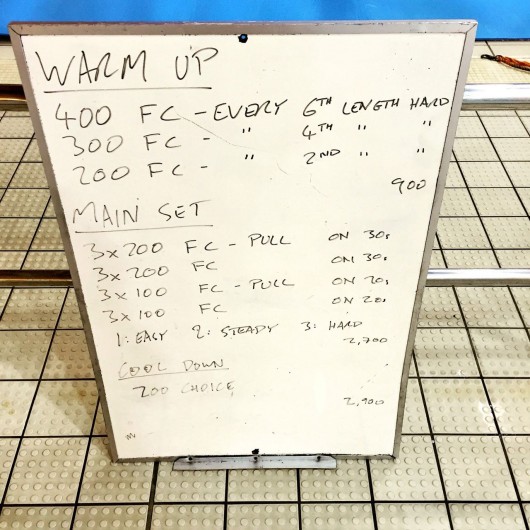 WARM UP
400 FC - EVERY 6TH LENGTH HARD
300 FC - " 4TH " "
200 FC - " 2ND " "
900
MAIN SET
3x200 FC - PULL ON 30s
3x200 FC ON 30s
3x100 FC - PULL ON 20s
3x100 FC ON 20s
1: EASY 2: STEADY 3: HARD
2,700
COOL DOWN
200 CHOICE
2,900